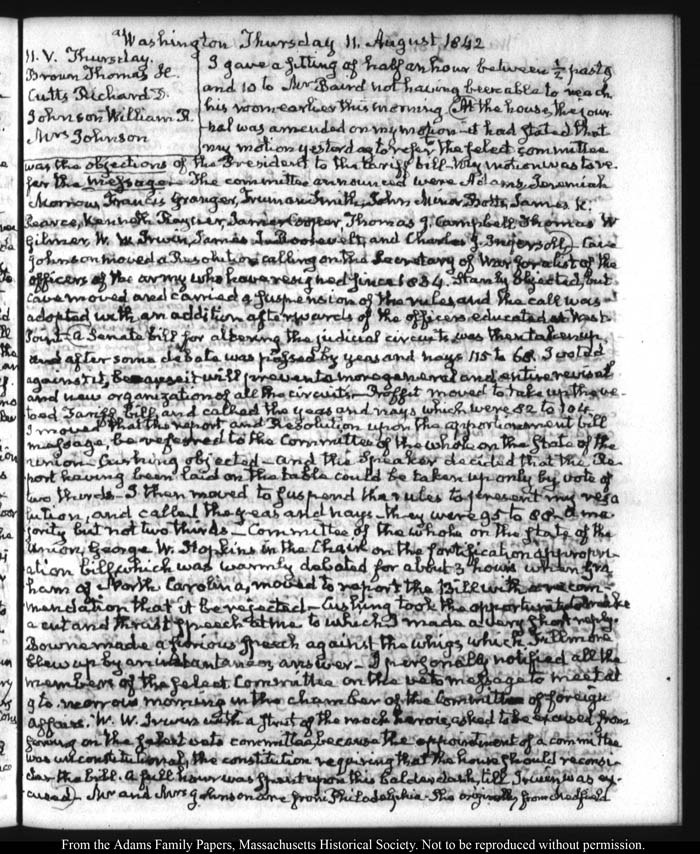 Washington Thursday 11. August 1842
11. V. Thursday.
Brown Thomas H.
Cutts Richard D.
Johnson William R.
Mrs Johnson
I gave a sitting of half an hour between ½ past 9
and 10 to Mr Baird not having been able to reach
his room earlier this morning. At the house, the jour-
nal was amended on my motion it had stated that
my motion yesterday to refer the select committee
was the objections of the President to the tariff bill. My motion was to re-
fer the message. The committee announced were Adams, Jeremiah
Morrow, Francis Granger, Truman Smith, John Minor Botts, James A.
Pearce, Kenneth Rayner, James Cooper, Thomas J. Campbell, Thomas W
Gilmer, W. W. Irwin, James I. Roosevelt, and Charles J. Ingersoll, Cave
Johnson moved a Resolution calling on the Secretary of War for a list of the
officers of the army who have resigned since 1834. Stanly objected, but
Cave moved and carried a suspension of the rules and the call was
adopted with an addition afterwards of the officers educated at West-
Point. A Senate bill for altering the judicial circuits was then taken up,
and after some debate was passed by yeas and nays 115 to 68. I voted
against it, because it will prevent a more general and entire revisal
and new organization of all the circuits. Proffit moved to take up the ve-
toed Tariff bill, and called the yeas and nays which were 82 to 104.
I moved that the report and Resolution upon the apportionment bill
message, be referred to the Committee of the whole on the State of the
union. Cushing objected - and the Speaker decided that the Re-
port having been laid on the table could be taken up only by vote of
two thirds - I then moved to suspend the rules to present my reso
lution, and called the yeas and nays - they were 95 to 80. a ma-
jority but not two thirds - Committee of the whole on the state of the
Union, George W. Hopkins in the Chair on the fortification appropri-
ation bill which was warmly debated for about 3 hours when Gra-
ham of North Carolina, moved to report the Bill with a recom-
mendation that it be rejected - Cushing took the opportunity to make
a cut and thrust speech at me to which I made a very short reply.
Bowne made a furious speech against the whigs, which Fillmore
blew up by an instantaneous answer - I personally notified all the
members of the select Committee on the veto message to meet at
9 to morrow morning in the chamber of the Committee of foreign
affairs. W. W. Irwin with a strut of the mock heroic, asked to be excused from
serving on the select veto committee, because the appointment of a committee
was unconstitutional, the constitution requiring that the house should reconsi-
der the bill. A full hour was spent upon this balderdash, till Irwin was ex-
cused. Mr and Mrs Johnson are from Philadelphia. She originally from Medfield
From the Adams Family Papers, Massachusetts Historical Society. Not to be reproduced without permission.